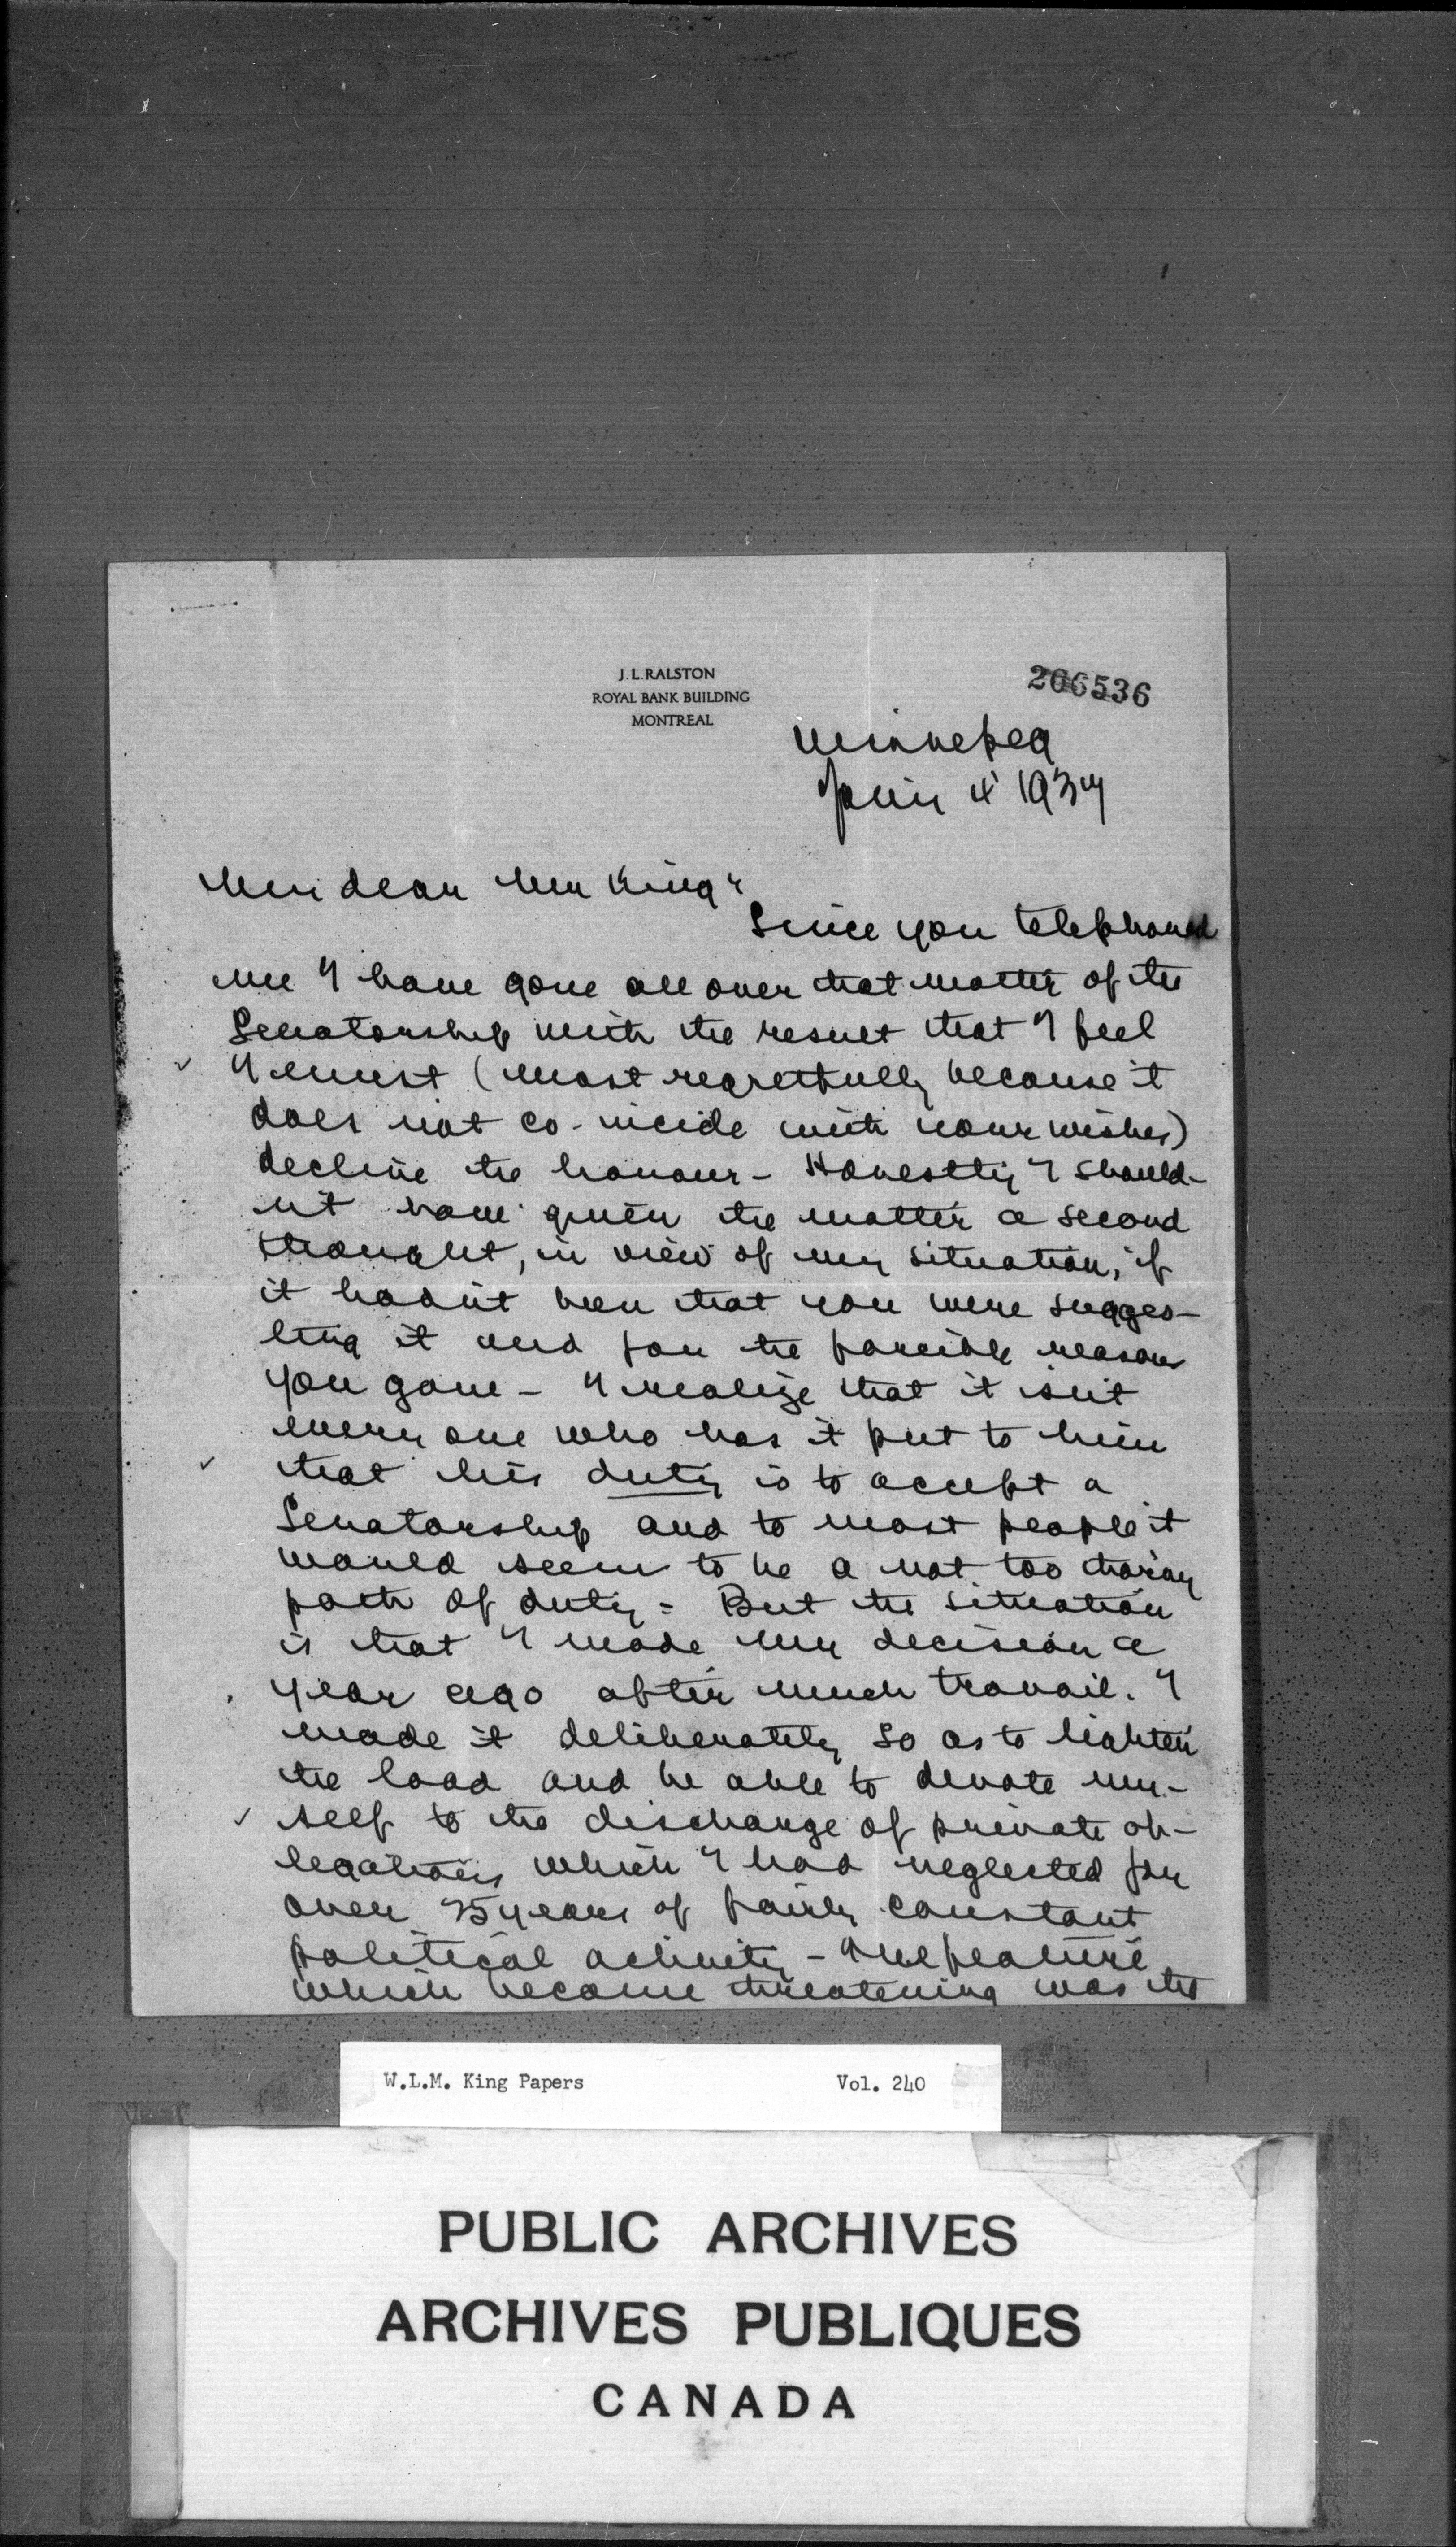 J. L. RALSTON
ROYAL BANK BUILDING
MONTREAL
206536
Winnipeg
4 1937
My dear Mr King,
Since you telephoned
me I have gone all over that matter of the
Senatorship with the result that I feel
I must (most regretfully because it
does not co-incide with your wishes)
decline the honour - Honestly I should-
nt have given the matter a second
thought, in view of my situation, if
it hadnt been that you were sugges-
ting it and for the forcible reasons
you gave - I realize that it isnt
every one who has it put to him
that his duty is to accept a
Senatorship and to most people it
would seem to be a not too thorny
path of duty - But the situation
is that I made my decision a
year ago after much travail. I
made it deliberately so as to lighten
the load and be able to devote my-
self to the discharge of private ob-
ligations which I had neglected for
over 25 years of fairly constant
political activity - One feature
which became threatening was the
W.L.M. King Papers Vol. 240
PUBLIC ARCHIVES
ARCHIVES PUBLIQUES
CANADA